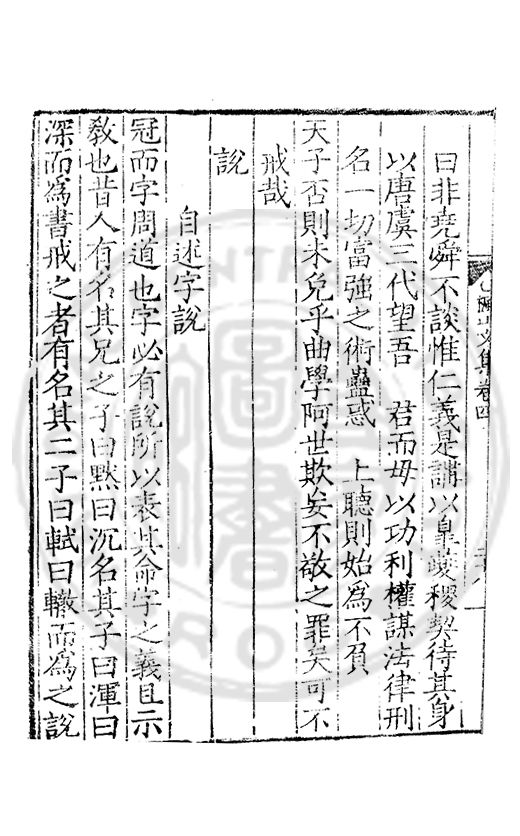 曰非堯舜不談惟仁義是謂以皐夔稷契待其身
以唐虞三代望吾　君而毋以功利權謀法律刑
名一切富強之術蠱惑　上聽則始為不負
天子否則未免乎曲學阿世欺妄不敬之罪矣可不
戒哉
說
自述字說
冠而字周道也字必有說所以表其命字之義且示
敎也昔人有名其兄之子曰默曰沉名其子曰渾曰
深而為書戒之者有名其二子曰軾曰轍而為之說
文集卷四